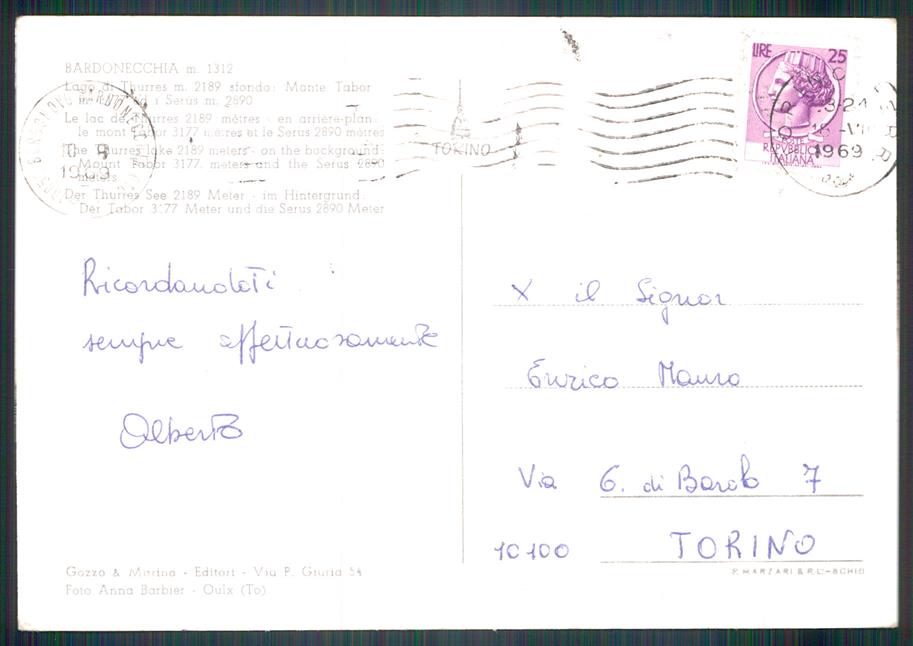 BARDONECCHIA m. 1312
Lago di Thurres m. 2189 sfondo: Monte Tabor
Serus m. 2890
Le lac de Thurres 2189 mètres - en arrière-plan
le mont Tabor 3177 mètres et le Serus 2890 mètres
The Thurres lake 2189 meters - on the background
Mount Tabor 3177 meters and the Serus 2890
Der Thurres See 2189 Meter - im Hintergrund
Der Tabor 3177 Meter und die Serus 2890 Meter
TORINO
1969
LIRE 25
POSTE
REPUBBLICA
ITALIANA
1969
Ricordandoti
sempre affettuosamente
Alberto
X il Signor
Enrico Mauro
Via G. di Barolo 7
10100 TORINO
Gozzo & Marina - Editori - Via P. Giuria 54
Foto Anna Barbier - Oulx (To)